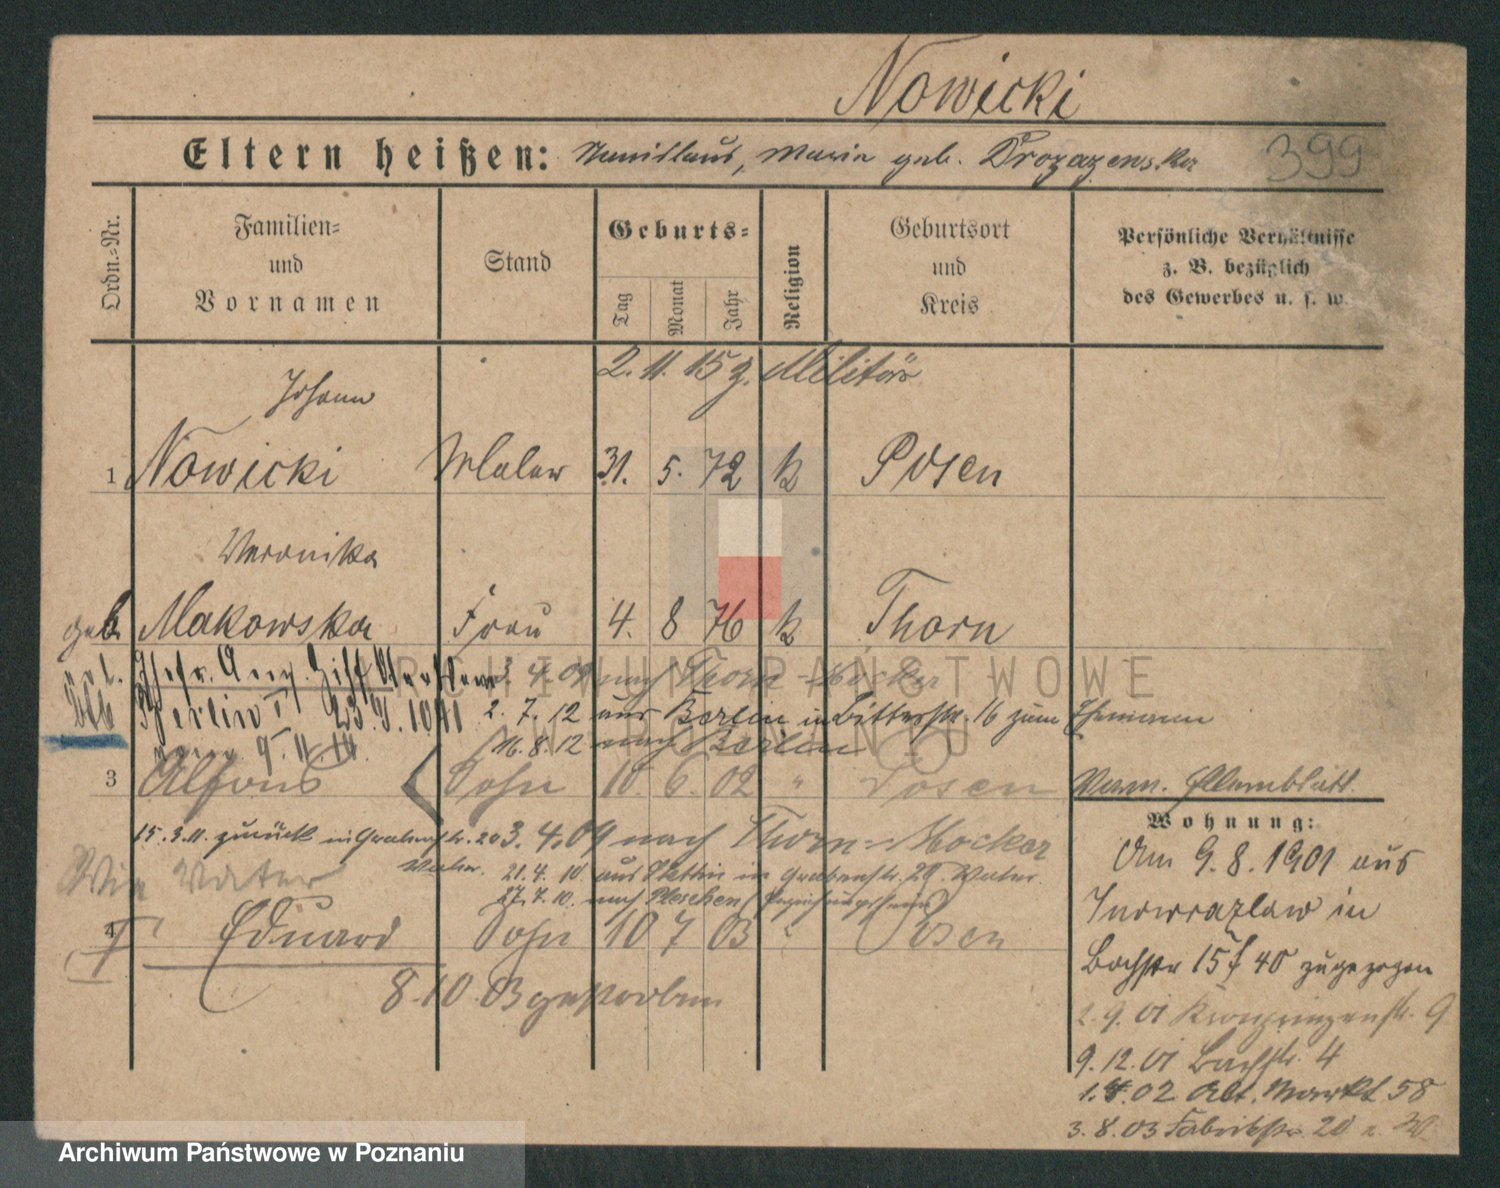 Nowicki
Eltern heißen: Stanislaus, Maria geb. 399
Ordn.-Nr.
Familien-
und
Vornamen
Stand
Geburts-
Tag
Monat
Jahr
Religion
Geburtsort
und
Kreis
Persönliche Verhältnisse
z. B. bezüglich
des Gewerbes u. s. w.
2. 11. 15 z. Militär
Johann
1 Nowicki Maler 31. 5. 72 k Posen
Veronika
geb. Makowska Frau 4. 8 76 k Thorn
3. 4. 09 nach Thorn-Mocker
2. 7. 12 aus Berlin in Bitterstr. 16 zum Ehemann
16. 8. 12 nach Berlin
3 Alfons Sohn 10. 6. 02 " Posen
15. 3. 11. zurück in Grabenstr. 20
Vater.
3. 4. 09 nach Thorn-Mocker
21. 4. 10 aus Stettin in Grabenstr. 20. Vater.
27. 7. 10. nach Pleschen
Wie Vater
4 Eduard Sohn 10 7 03 " Posen
8. 10. 03 gestorben
Wohnung:
Am 9. 8. 1901 aus
Inowrazlaw in
Bachstr 15 f 40 zugezogen
2. 9. 01 Kronprinzenstr. 9
9. 12. 01 Bachstr. 4
02 Alt. Markt 58
3. 8. 03 Fabrikstr. 20
ARCHIWUM PAŃSTWOWE
W POZNANIU
Archiwum Państwowe w Poznaniu